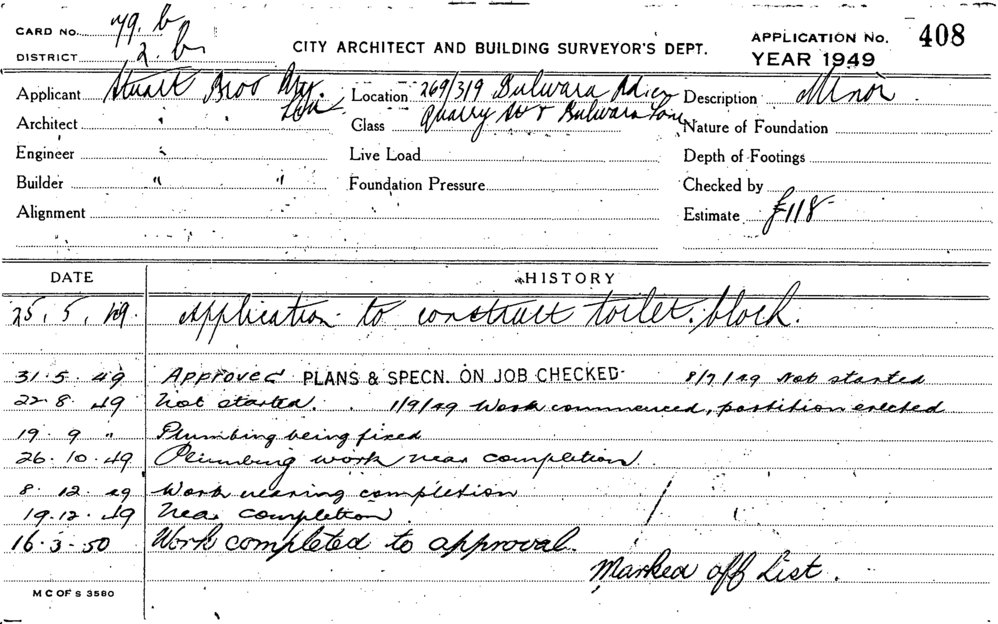 CARD No. 79. b
DISTRICT 2. b
CITY ARCHITECT AND BUILDING SURVEYOR'S DEPT.
APPLICATION No. 408
YEAR 1949
Applicant Stuart Bros Pty. Ltd
Location 269/319 Bulwara Rd. cr
Quarry St & Bulwara Lane
Description Minor
Architect " "
Class
Nature of Foundation
Engineer "
Live Load
Depth of Footings
Builder " "
Foundation Pressure
Checked by
Alignment
Estimate £118-
DATE HISTORY
25. 5. 49. Application to construct toilet block.
31. 5. 49 Approved PLANS & SPECN. ON JOB CHECKED 8/7/49 Not started
22. 8. 49 Not started. 1/9/49 Work commenced, partition erected
19. 9 " Plumbing being fixed
26. 10. 49 Plumbing work near completion
8. 12. 49 Work nearing completion
19. 12. 49 Near completion
16. 3. 50 Work completed to approval.
Marked off List.
M C OF S 3580